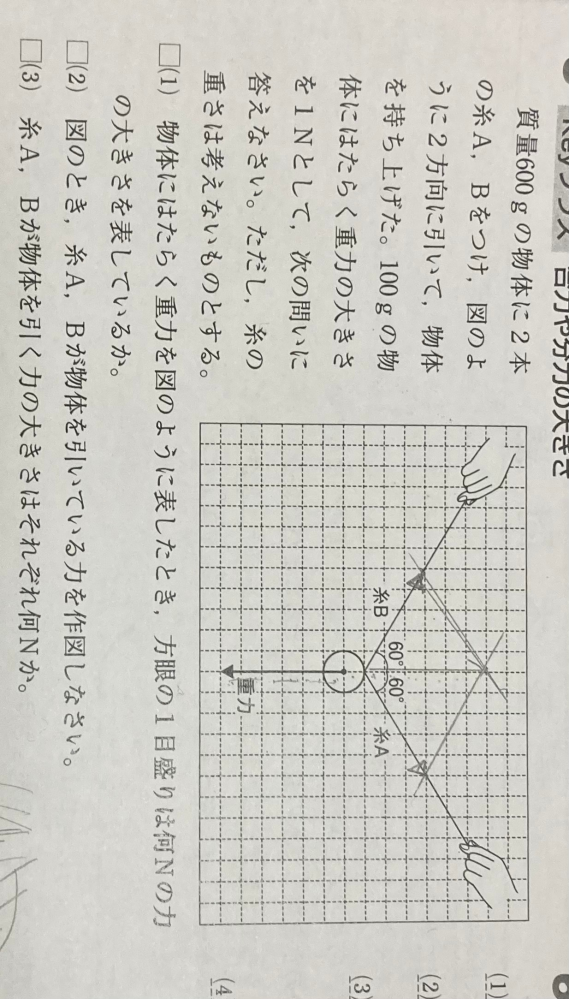 Keyプラス 合力や分力の大きさ
質量600gの物体に2本
の糸A，Bをつけ，図のよ
うに2方向に引いて，物体
を持ち上げた。100gの物
体にはたらく重力の大きさ
を1Nとして，次の問いに
答えなさい。ただし，糸の
重さは考えないものとする。
糸B
60°
60°
糸A
重力
□(1) 物体にはたらく重力を図のように表したとき，方眼の1目盛りは何Nの力
の大きさを表しているか。
□(2) 図のとき，糸A，Bが物体を引いている力を作図しなさい。
□(3) 糸A，Bが物体を引く力の大きさはそれぞれ何Nか。
(1)
(2)
(3)
(4